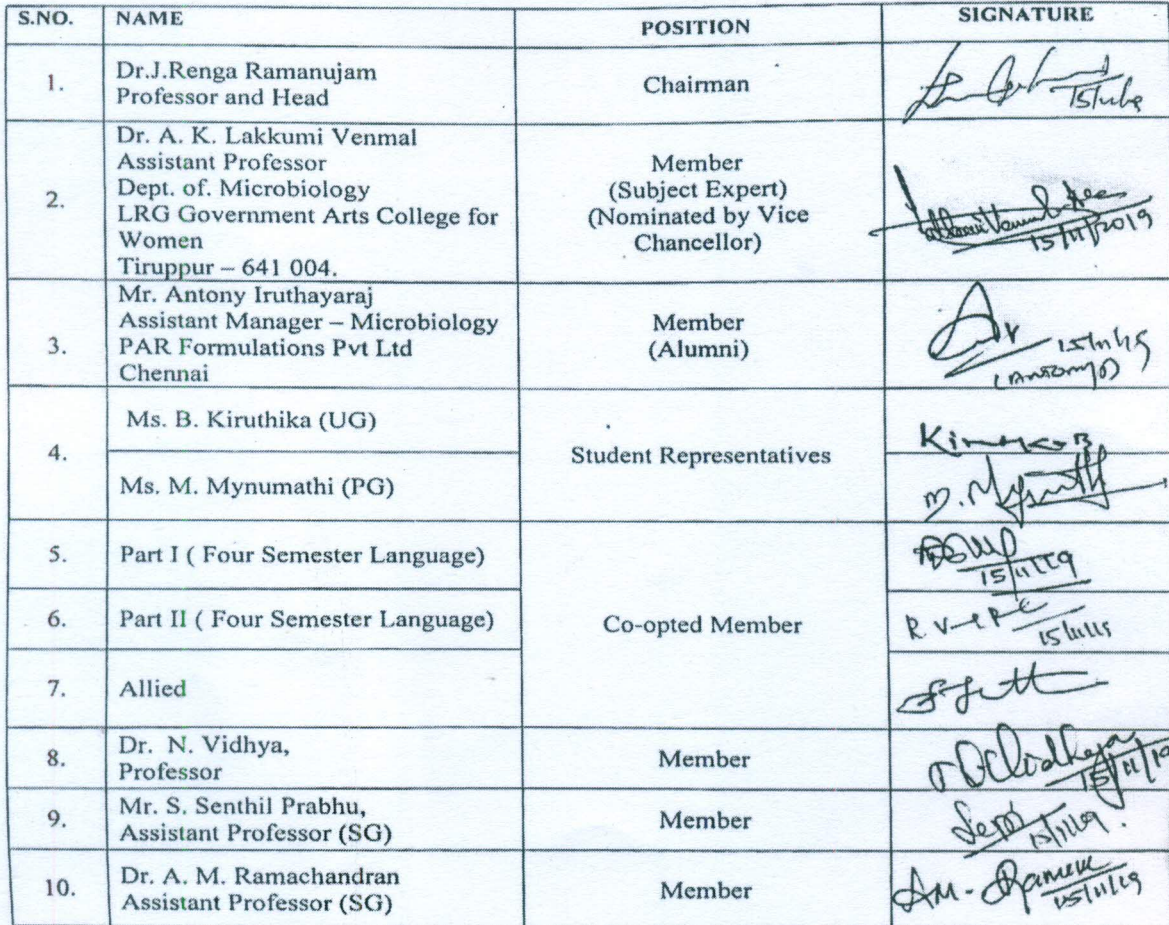 S.NO. NAME POSITION SIGNATURE
1. Dr.J.Renga Ramanujam
Professor and Head
Chairman
15/11/19
2. Dr. A. K. Lakkumi Venmal
Assistant Professor
Dept. of. Microbiology
LRG Government Arts College for
Women
Tiruppur – 641 004.
Member
(Subject Expert)
(Nominated by Vice
Chancellor)
15/11/2019
3. Mr. Antony Iruthayaraj
Assistant Manager – Microbiology
PAR Formulations Pvt Ltd
Chennai
Member
(Alumni)
15/11/19
4. Ms. B. Kiruthika (UG)
Ms. M. Mynumathi (PG)
Student Representatives
5. Part I ( Four Semester Language)
15/11/19
6. Part II ( Four Semester Language)
Co-opted Member
15/11/19
7. Allied
8. Dr. N. Vidhya,
Professor
Member
15/11/19
9. Mr. S. Senthil Prabhu,
Assistant Professor (SG)
Member
15/11/19.
10. Dr. A. M. Ramachandran
Assistant Professor (SG)
Member
15/11/19